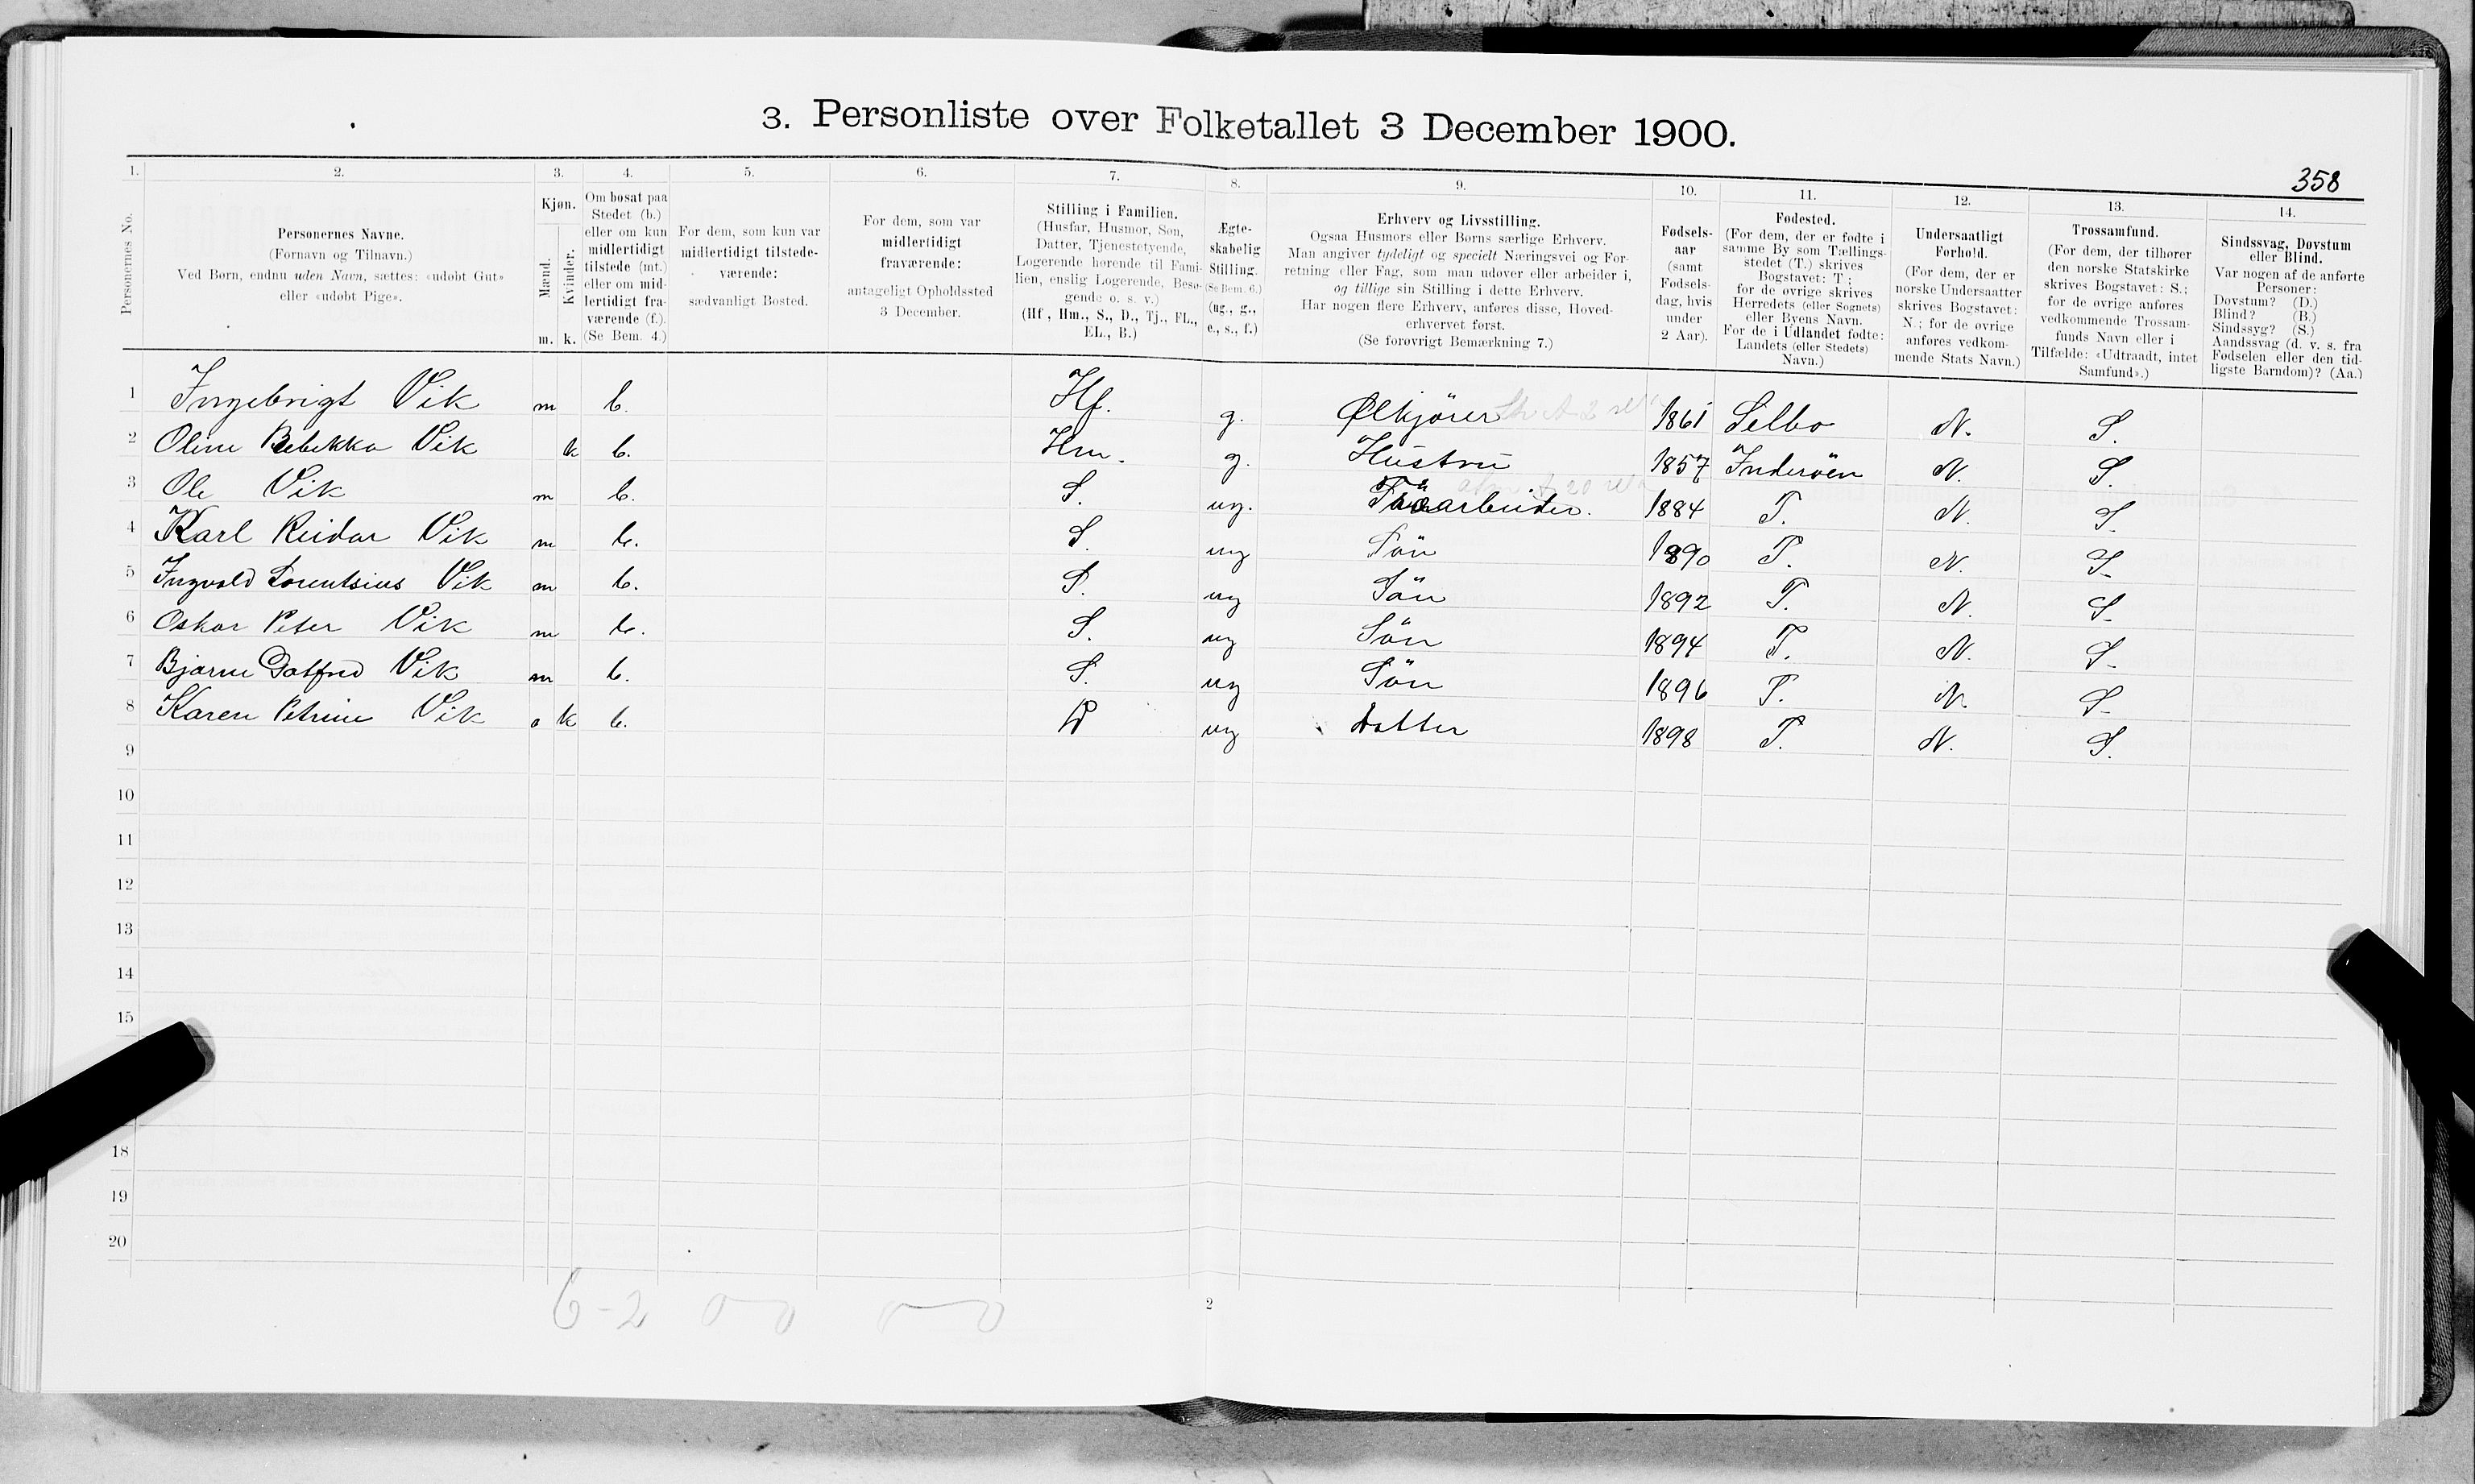 3. Personliste over Folketallet 3 December 1900.
358
1. 2. 3. 4. 5. 6. 7. 8. 9. 10. 11. 12. 13. 14.
Personernes No.
Personernes Navne.
(Fornavn og Tilnavn.)
Ved Børn, endnu uden Navn, sættes: «udøbt Gut»
eller «udøbt Pige».
Kjøn.
Mænd.
Kvinder.
m. k.
Om bosat paa
Stedet (b.)
eller om kun
midlertidigt
tilstede (mt.)
eller om mid-
lertidigt fra-
værende (f.).
(Se Bem. 4.)
For dem, som kun var
midlertidigt tilstede-
værende:
sædvanligt Bosted.
For dem, som var
midlertidigt
fraværende:
antageligt Opholdssted
3 December.
Stilling i Familien.
(Husfar, Husmor, Søn,
Datter, Tjenestetyende,
Logerende hørende til Fami-
lien, enslig Logerende, Besø-
gende o. s. v.)
(Hf., Hm., S., D., Tj., FL.,
EL., B.)
Ægte-
skabelig
Stilling.
(Se Bem. 6.)
(ug., g.,
e., s., f.)
Erhverv og Livsstilling.
Ogsaa Husmors eller Børns særlige Erhverv.
Man angiver tydeligt og specielt Næringsvei og For-
retning eller Fag, som man udøver eller arbeider i,
og tillige sin Stilling i dette Erhverv.
Har nogen flere Erhverv, anføres disse, Hoved-
erhvervet først.
(Se forøvrigt Bemærkning 7.)
Fødsels-
aar
(samt
Fødsels-
dag, hvis
under
2 Aar).
Fødested.
(For dem, der er fødte i
samme By som Tællings-
stedet (T.) skrives
Bogstavet: T;
for de øvrige skrives
Herredets (eller Sognets)
eller Byens Navn.
For de i Udlandet fødte:
Landets (eller Stedets)
Navn.)
Undersaatligt
Forhold.
(For dem, der er
norske Undersaatter
skrives Bogstavet:
N.; for de øvrige
anføres vedkom-
mende Stats Navn.)
Trossamfund.
(For dem, der tilhører
den norske Statskirke
skrives Bogstavet: S.;
for de øvrige anføres
vedkommende Trossam-
funds Navn eller i
Tilfælde: «Udtraadt, intet
Samfund».)
Sindssvag, Døvstum
eller Blind.
Var nogen af de anførte
Personer:
Døvstum? (D.)
Blind? (B.)
Sindssyg? (S.)
Aandssvag (d. v. s. fra
Fødselen eller den tid-
ligste Barndom)? (Aa.)
1 Ingebrigt Vik m b. Hf. g. Ølkjører 1861 Selbo N. S.
2 Oline Rebekka Vik k b. Hm. g. Hustru 1857 Inderöen N. S.
3 Ole Vik m b. S. ug. Træarbeider. 1884 T. N. S.
4 Karl Reidar Vik m b. S. ug Sön 1890 T. N. S.
5 Ingvald Lorentsius Vik m b. S. ug Sön 1892 T. N. S.
6 Oskar Peter Vik m b. S. ug Sön 1894 T. N. S.
7 Bjarne Gotfred Vik m b. S. ug Sön 1896 T. N. S.
8 Karen Petrine Vik k b. D ug Datter 1898 T. N. S.
9
10
11
12
13
14
15
18
19
20
6-2 0 0 0 0
2